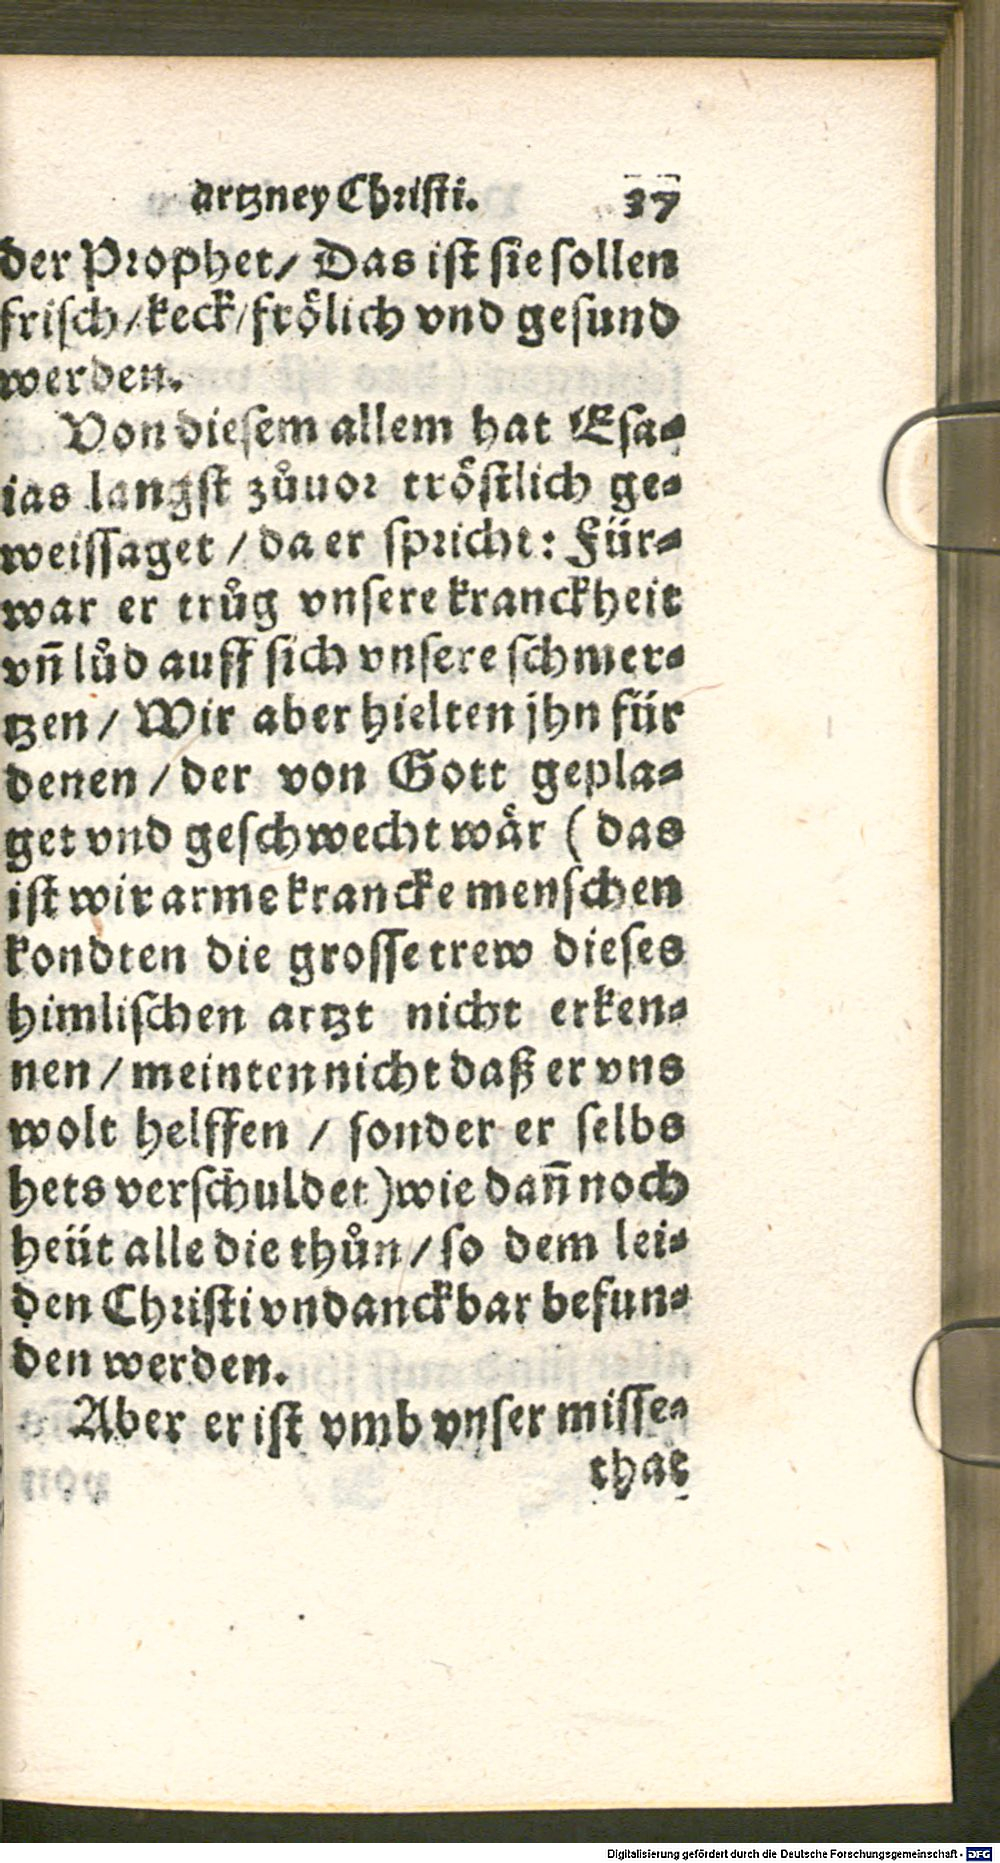 artzney Christi. 37
der Prophet/ Das ist sie sollen
frisch/keck/frölich vnd gesund
werden.
Von diesem allem hat Esa⸗
ias langst zůuor tröstlich ge⸗
weissaget / da er spricht: Für⸗
war er trůg vnsere kranckheit
vñ lůd auff sich vnsere schmer⸗
tzen / Wir aber hielten jhn für
denen / der von Gott gepla⸗
get vnd geschwecht wår ( das
ist wir arme krancke menschen
kondten die grosse trew dieses
himlischen artzt nicht erken⸗
nen / meinten nicht daß er vns
wolt helffen / sonder er selbs
hets verschuldet) wie dañ noch
heüt alle die thůn / so dem lei⸗
den Christi vndanckbar befun⸗
den werden.
Aber er ist vmb vnser misse⸗
that
Digitalisierung gefördert durch die Deutsche Forschungsgemeinschaft - DFG